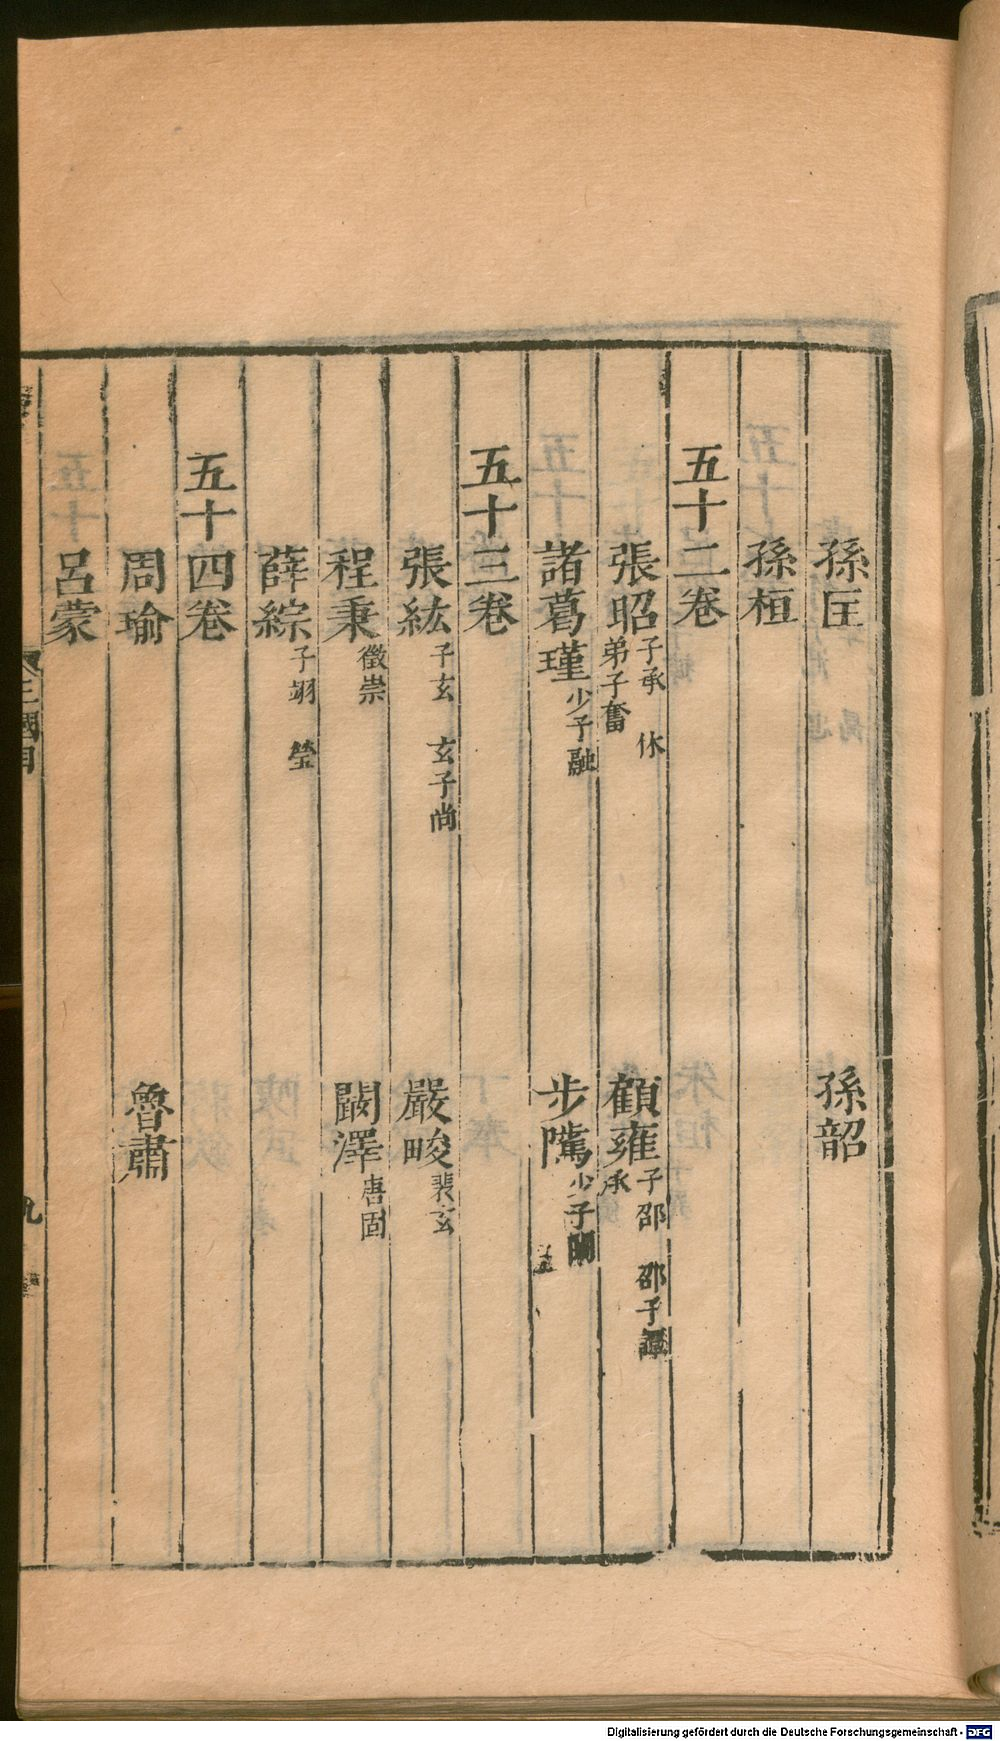 孫匡 孫韶
孫桓
五十二卷
張昭 子承 休 弟子奮 顧雍 子邵 邵子譚 承
諸葛瑾 少子融 步騭 少子闡
五十三卷
張紘 子玄 玄子尚 嚴畯 裴玄
程秉 徵崇 闞澤 唐固
薛綜 子珝 瑩
五十四卷
周瑜 魯肅
呂蒙
三國目
九
Digitalisierung gefördert durch die Deutsche Forschungsgemeinschaft - DFG